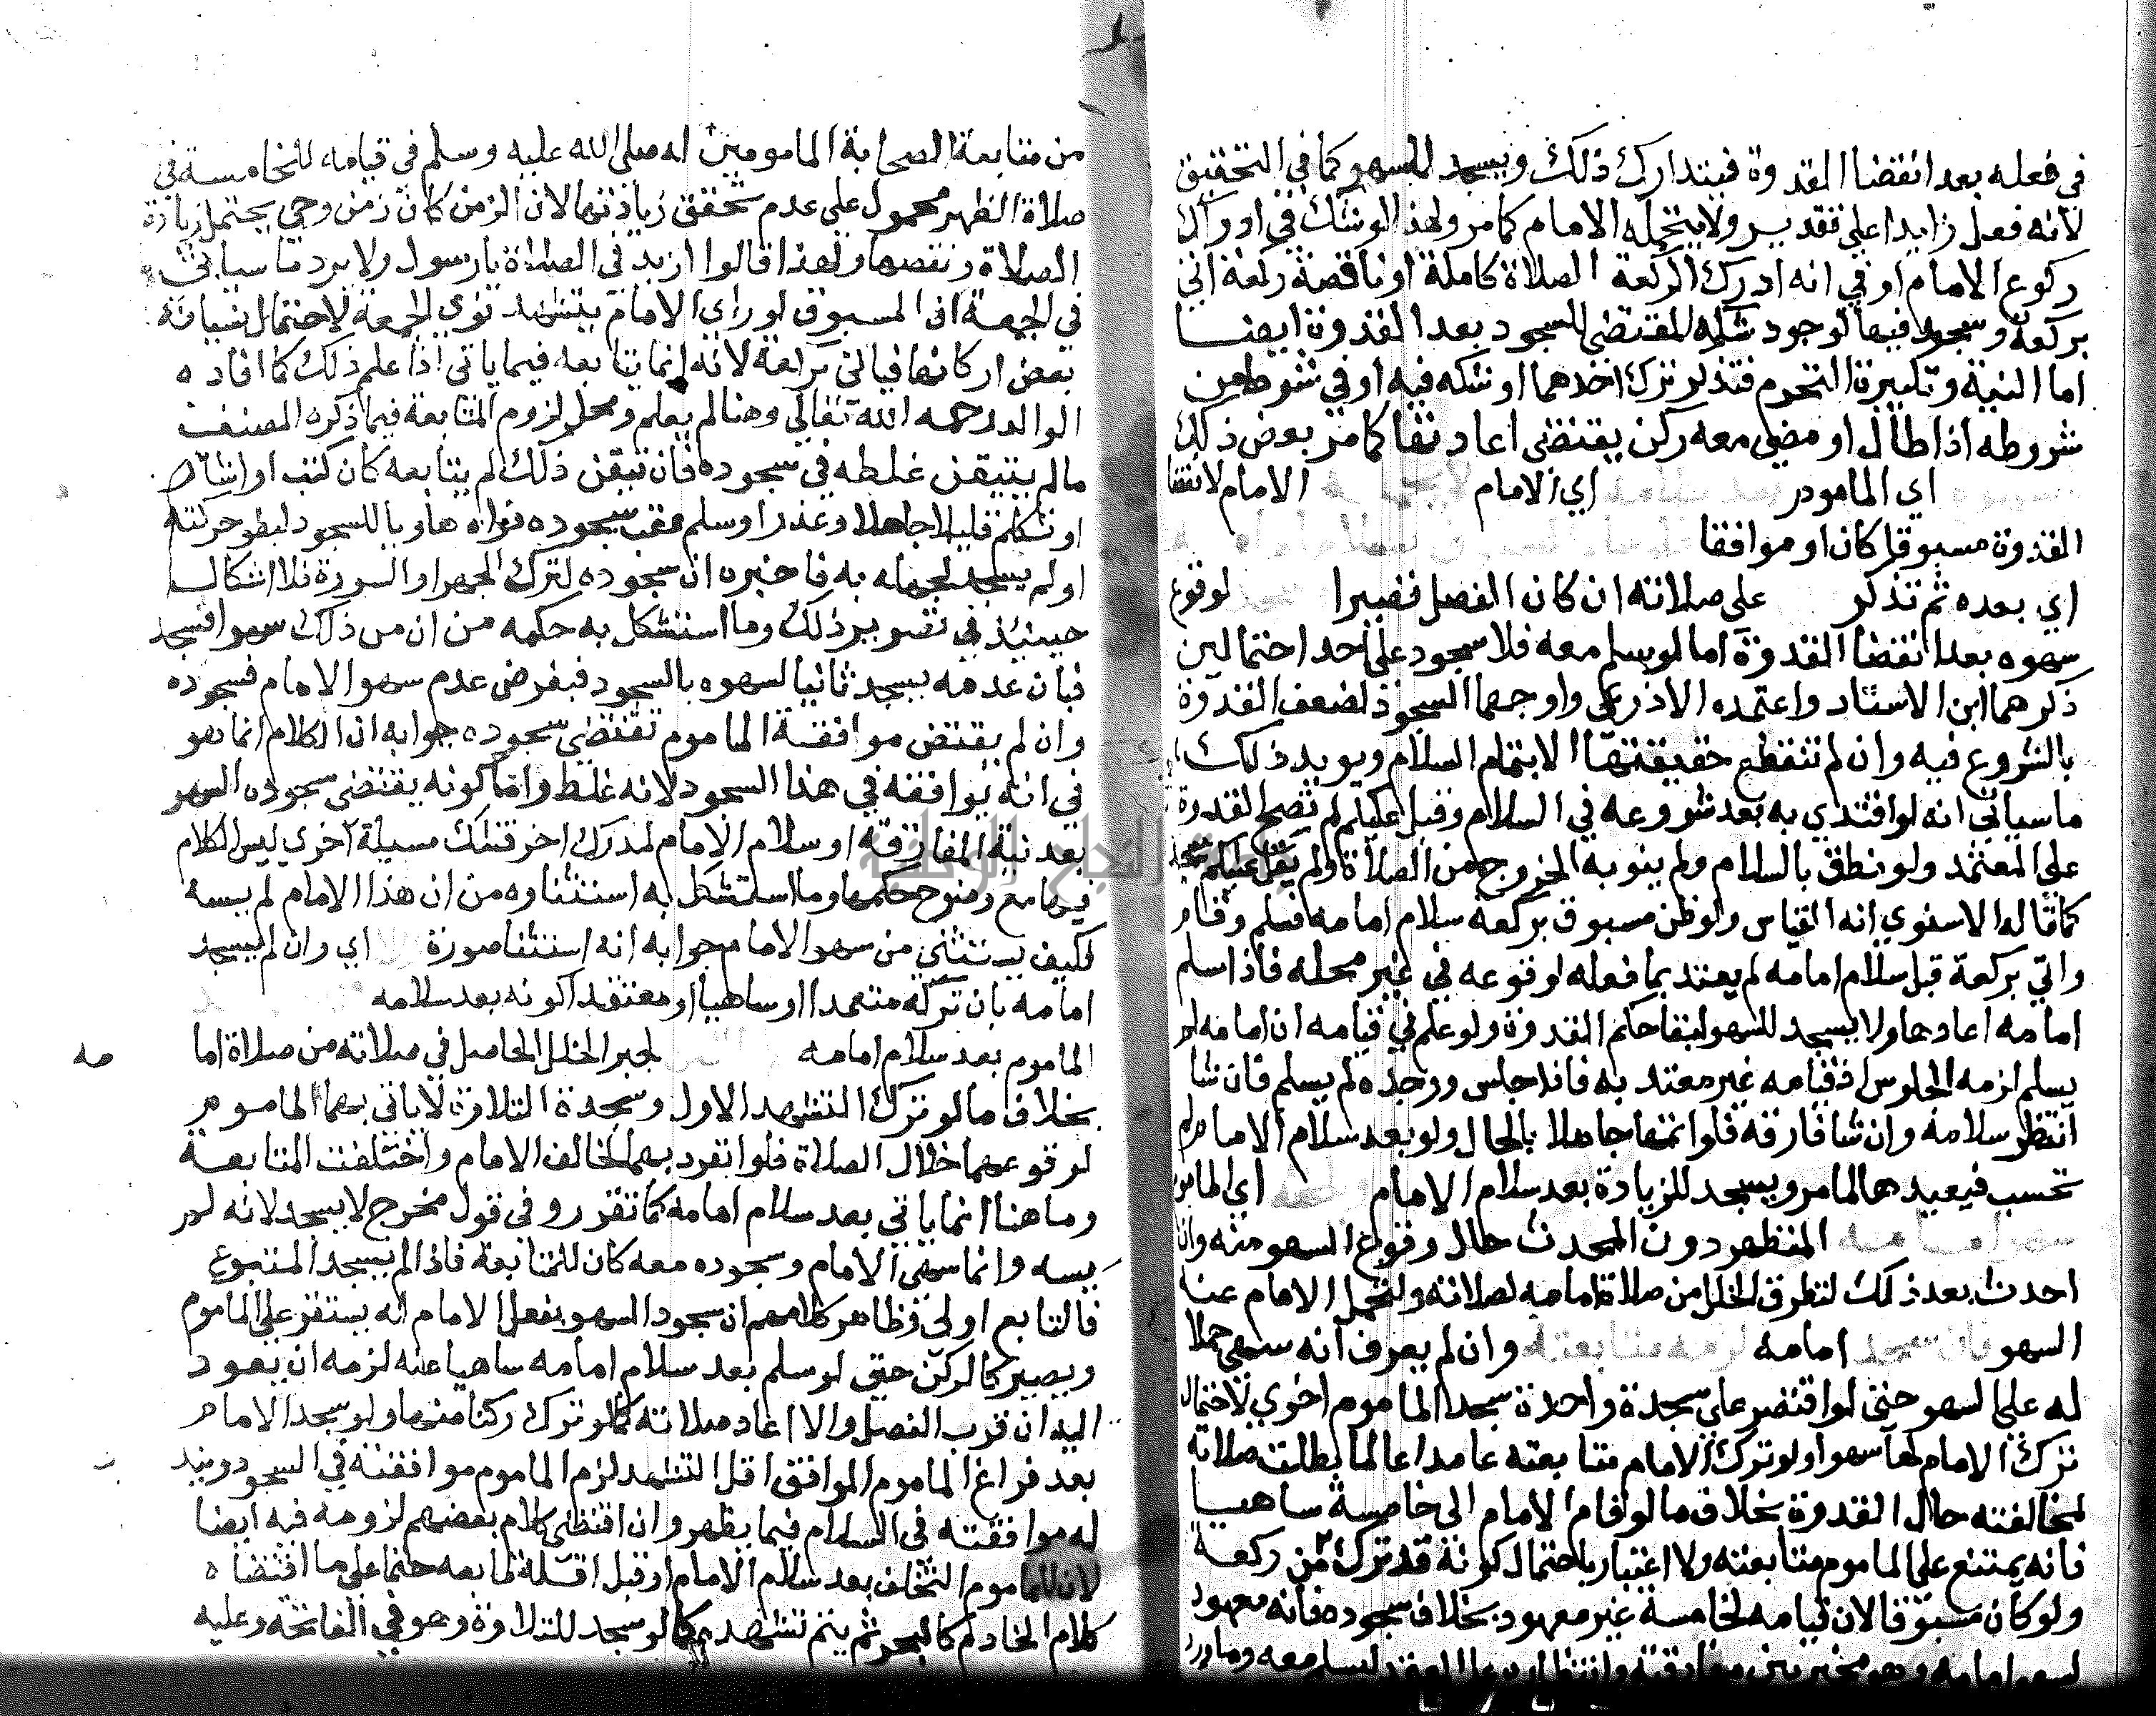 في فعله بعد انقضا القدوة فيتدارك ذلك ويسجد للسهو كما في التحقيق
لانه فعل زايدا على تقدير ولا يتحمله الامام كما مر ولهذا لو شك في ادراك
ركوع الامام او في انه ادرك الركعة الصلاة كاملة او ناقصة ركعة اتى
بركعة وسجد فيها لوجود شكه المقتضي للسجود بعد القدوة ايضا
اما النية وتكبيرة التحرم فتذكر ترك احدهما او شكه فيه او في شرط من
شروطه اذا طال او مضى معه ركن يقتضي اعادتها كما مر بعض ذلك
اي الماموم اي الامام الامام لانتها
القدوة مسبوقا كان او موافقا
اي بعده ثم تذكر على صلاته ان كان الفصل قصيرا لوقوع
سهوه بعد انقضا القدوة اما لو سلم معه فلا سجود على احد احتمالين
ذكرهما ابن الاستاد واعتمده الاذرعي واوجهها السجود لضعف القدوة
بالشروع فيه وان لم تنقطع حقيقتها الا بتمام السلام ويويد ذلك
ما سياتي انه لو اقتدي به بعد شروعه في السلام وقبل عليكم لم تصح القدوة
على المعتمد ولو نطق بالسلام ولم ينو به الخروج من الصلاة ولم يقل عليكم
كما قاله الاسنوي انه القياس ولو ظن مسبوق بركعة سلام امامه فسلم وقام
واتي بركعة قبل سلام امامه لم يعتد بما فعله لوقوعه في غير محله فاذا سلم
امامه اعادها ولا يسجد للسهو لبقا حكم القدوة ولو علم في قيامه ان امامه لم
يسلم لزمه الجلوس اذ قيامه غير معتد به فاذا جلس ووجده لم يسلم فان شا
انتظر سلامه وان شا فارقه فلو اتمها جاهلا بالحال ولو بعد سلام الامام لم
تحسب فيعيدها لما مر ويسجد للزيادة بعد سلام الامام اي الماموم
المتطهر دون المحدث حال وقوع السهو منه وان
احدث بعد ذلك لتطرق الخلل من صلاة امامه لصلاته ولتحمل الامام عنه
السهو امامه وان لم يعرف انه سهى حملا
له على السهو حتى لو اقتصر على سجدة واحدة سجد الماموم اخرى لاحتمال
ترك الامام لها سهوا ولو ترك الامام متابعته عامدا عالما بطلت صلاته
لمخالفته حال القدوة بخلاف ما لو قام الامام الى خامسة ساهيا
فانه يمتنع على الماموم متابعته ولا اعتبار باحتمال كونه قد ترك من ركعة
ولو كان مسبوقا لان قيامه لخامسة غير معهود بخلاف سجوده فانه معهود
لسهو امامه وهو مخير بين مفارقته وانتظاره على المعتمد ليسلم معه وما ورد
من متابعة الصحابة المامومين له صلى الله عليه وسلم في قيامه للخامسة في
صلاة الظهر محمول على عدم تحقق زيادتها لان الزمن كان زمن وحي يحتمل زيادة
الصلاة ونقصها ولهذا قالوا ازيد في الصلاة يا رسول ولا يرد ما سياتي
في الجمعة ان المسبوق لو راي الامام يتشهد نوي الجمعة لاحتمال نسيانه
بعض اركانها فياتي بركعة لانه انما يتابعه فيما ياتي اذا علم ذلك كما افاده
الوالد رحمه الله تعالى وهنا لم يعلم ومحل لزوم المتابعة فيما ذكره المصنف
ما لم يتيقن غلطه في سجوده فان تيقن ذلك لم يتابعه كان كتب او اشار
او تكلم قليلا جاهلا وعذر او سلم عقب سجوده فراه هاويا للسجود لبطو حركته
او لم يسجد لجهله به فاخبره ان سجوده لترك الجهر او السورة فلا اشكال
حينيذ في تصوير ذلك وما استشكل به حكمه من ان من ذلك سهوا فسجد
فبان عدمه يسجد ثانيا لسهوه بالسجود فبفرض عدم سهو الامام فسجوده
وان لم يقتض موافقة الماموم تقتضي سجوده جوابه ان الكلام انما هو
في انه يوافقه في هذا السجود لانه غلط واما كونه يقتضي سجوده السهو
بعد نية المفارقة او سلام الامام لمدرك اخر فتلك مسيلة اخري ليس الكلام
فيها مع وضوح حكمها وما استشكل به استثناوه من ان هذا الامام لم يسه
فكيف يستثني من سهو الامام جوابه انه استثنا صورة اي وان لم يسجد
امامه بان تركه متعمدا او ساهيا او معتقدا كونه بعد سلامه
الماموم بعد سلام امامه لجبر الخلل الحاصل في صلاته من صلاة اما
مه
بخلاف ما لو ترك التشهد الاول وسجدة التلاوة لا ياتي بهما الماموم
لوقوعهما خلال الصلاة فلو انفرد بهما لخالف الامام واختلفت المتابعة
وما هنا انما ياتي بعد سلام امامه كما تقرر وفي قول مخرج لا يسجد لانه لم
يسه وانما سهى الامام وسجوده معه كان للمتابعة فاذا لم يسجد المتبوع
فالتابع اولى وظاهر كلامهم ان سجود السهو بفعل الامام له يستقر على الماموم
ويصير كالركن حتى لو سلم بعد سلام امامه ساهيا عنه لزمه ان يعود
اليه ان قرب الفصل والا اعاد صلاته كما لو ترك ركنا منها ولو سجد الامام
بعد فراغ الماموم الموافق اقل التشهد لزم الماموم موافقته في السجود ويند
ب
له موافقته في السلام فيما يظهر وان اقتضى كلام بعضهم لزومه فيه ايضا
لان للماموم التخلف بعد سلام الامام او قبل اقله تابعه حتما على ما اقتضاه
كلام الخادم كالبحر ثم يتم تشهده كما لو سجد للتلاوة وهو في الفاتحة وعليه